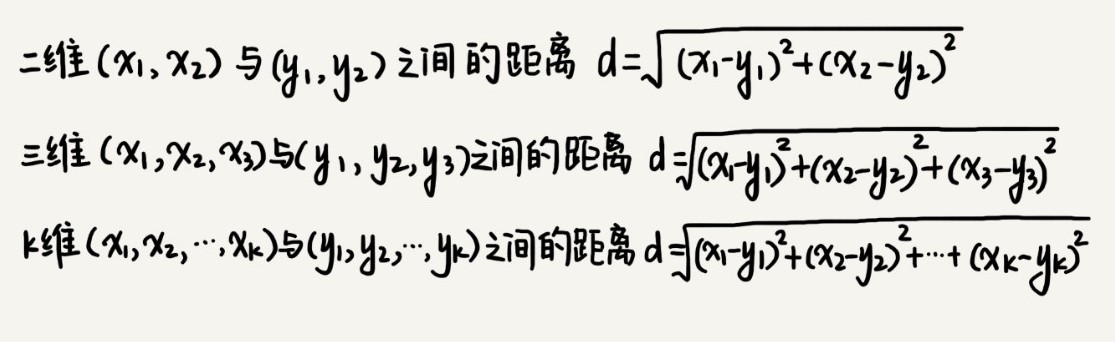 二维 (x₁, x₂) 与 (y₁, y₂) 之间的距离 d=√((x₁-y₁)²+(x₂-y₂)²)
三维 (x₁, x₂, x₃) 与 (y₁, y₂, y₃) 之间的距离 d=√((x₁-y₁)²+(x₂-y₂)²+(x₃-y₃)²)
k维 (x₁, x₂, ⋯, xₖ) 与 (y₁, y₂, ⋯, yₖ) 之间的距离 d=√((x₁-y₁)²+(x₂-y₂)²+⋯+(xₖ-yₖ)²)